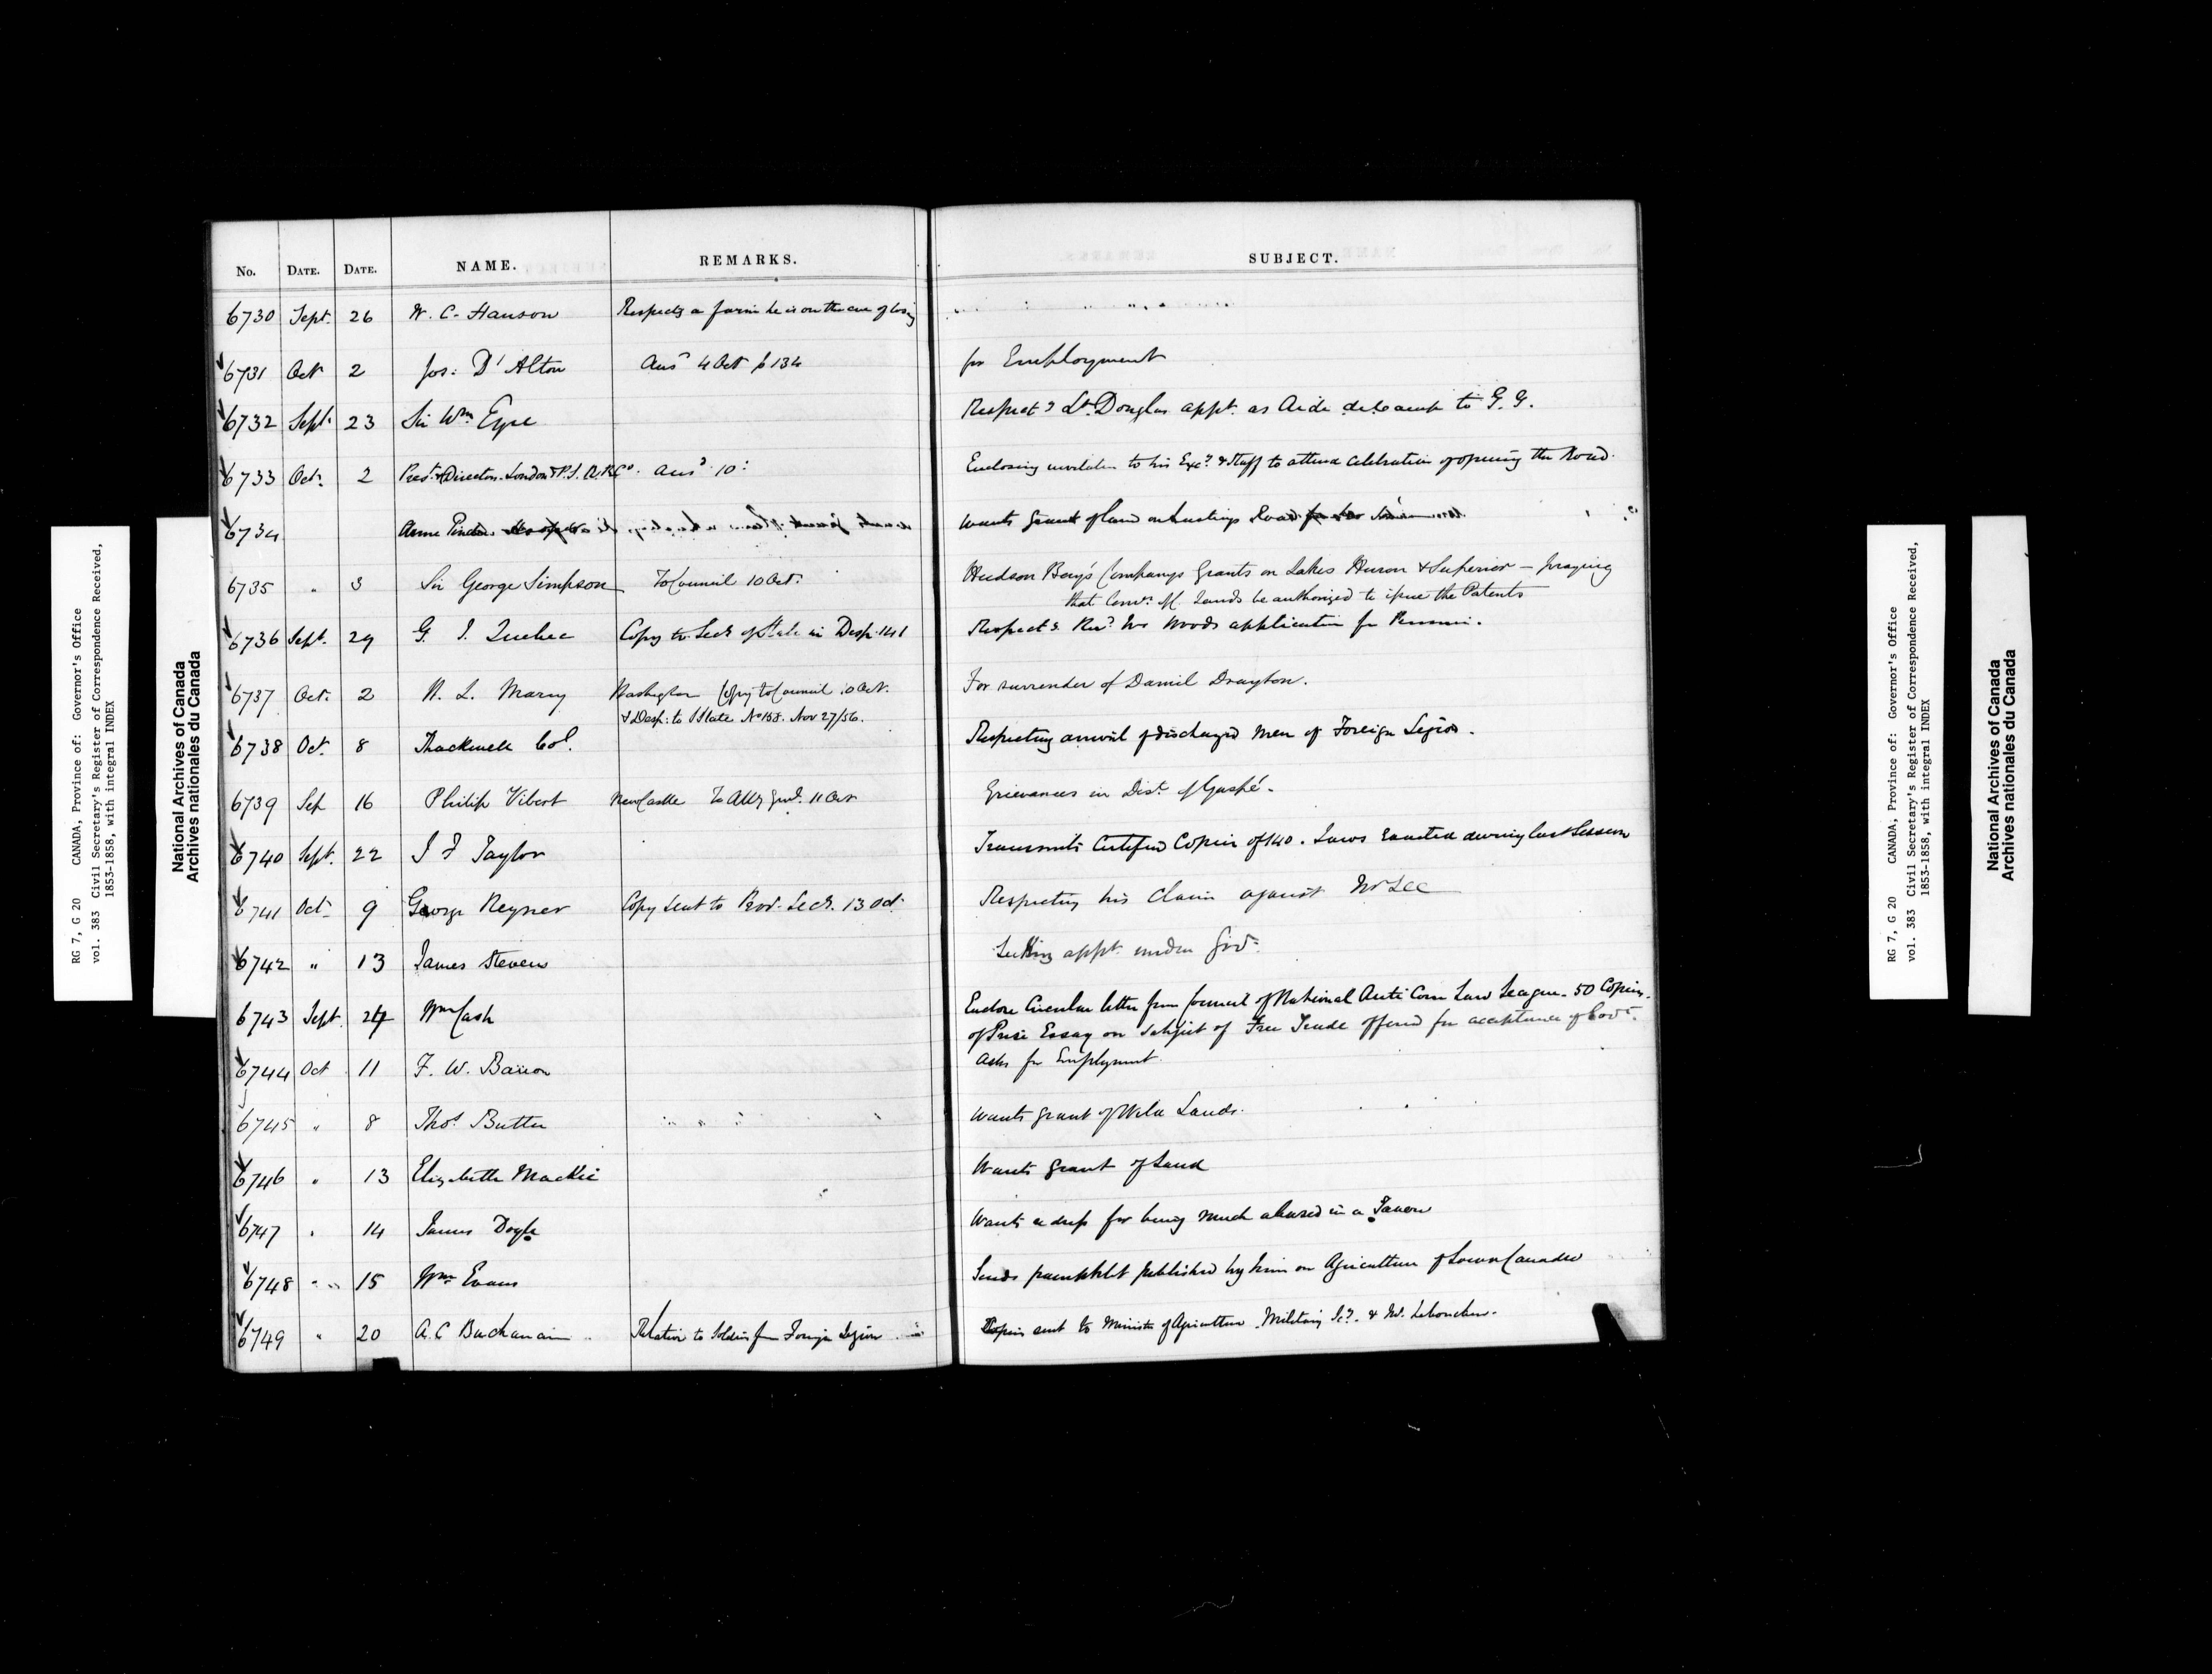 No. DATE. DATE. NAME. REMARKS. SUBJECT.
6730 Sept. 26 W. C. Hanson Respects a farm he is on the eve of losing
6731 Oct 2 Jos: D'Alton Ansd 4 Oct p 134 for Employment
6732 Sept. 23 Sir Wm Eyre Respectg Lt. Douglas appt. as Aide de Camp to G. G.
6733 Oct. 2 Prest. & Directors London & P. S. R. R. Co. ansd 10: Enclosing invitation to his Excy. & Staff to attend celebration of opening the Road.
6734 Anne wants grant of land on Hastings Road
6735 " 3 Sir George Simpson To Council 10 Oct. Hudson Bay's Companys Grants on Lakes Huron & Superior – praying
that Comr. of C. Lands be authorized to issue the Patents
6736 Sept. 29 G. J. Quebec Copy to Secy of State in Desp. 141 Respectg. Revd. Mr Woods application for Pension.
6737 Oct. 2 W. L. Marcy Washington Copy to Council 10 Oct. For surrender of Daniel Drayton.
& Desp: to S State No 158. Nov 27/56.
6738 Oct. 8 Thackwell Col. Respecting arrival of discharged men of Foreign Legion.
6739 Sep 16 Philip Vibert New Castle To Atty Genl. 11 Oct Grievances in Dist. of Gaspé.
6740 Sept. 22 J F Taylor Transmits Certified Copies of 140. Laws Enacted during last Session
6741 Oct. 9 George Reyner Copy sent to Prov. Secy. 13 Oct. Respecting his Claim against Mr Lee
6742 " 13 James Steven Seeking appt. under Govt.
6743 Sept. 24 Wm Cash Enclose Circular letter from Council of National Anti Corn Law League. 50 Copies
of Prize Essay on subject of Free Trade offered for acceptance of Govt.
6744 Oct 11 F. W. Barron Asks for Employment
6745 " 8 Thos. Butler wants grant of Wild Lands.
6746 " 13 Elizabeth Mackie Wants grant of Land
6747 " 14 James Doyle Wants redress for being much abused in a Tavern
6748 " " 15 Wm Evans Sends pamphlet published by him on Agriculture of Lower Canada
6749 " 20 A. C Buchanan Relative to Soldiers from Foreign Legion Copies sent to Minister of Agriculture, Military Secy. & Mr. Labouchere.
RG 7, G 20 CANADA, Province of: Governor's Office
vol. 383 Civil Secretary's Register of Correspondence Received,
1853-1858, with integral INDEX
National Archives of Canada
Archives nationales du Canada
RG 7, G 20 CANADA, Province of: Governor's Office
vol. 383 Civil Secretary's Register of Correspondence Received,
1853-1858, with integral INDEX
National Archives of Canada
Archives nationales du Canada